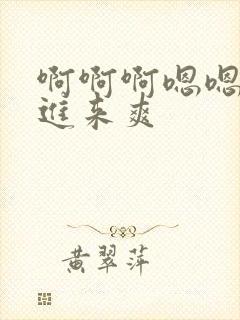 啊啊啊嗯嗯
进来爽
黄翠萍